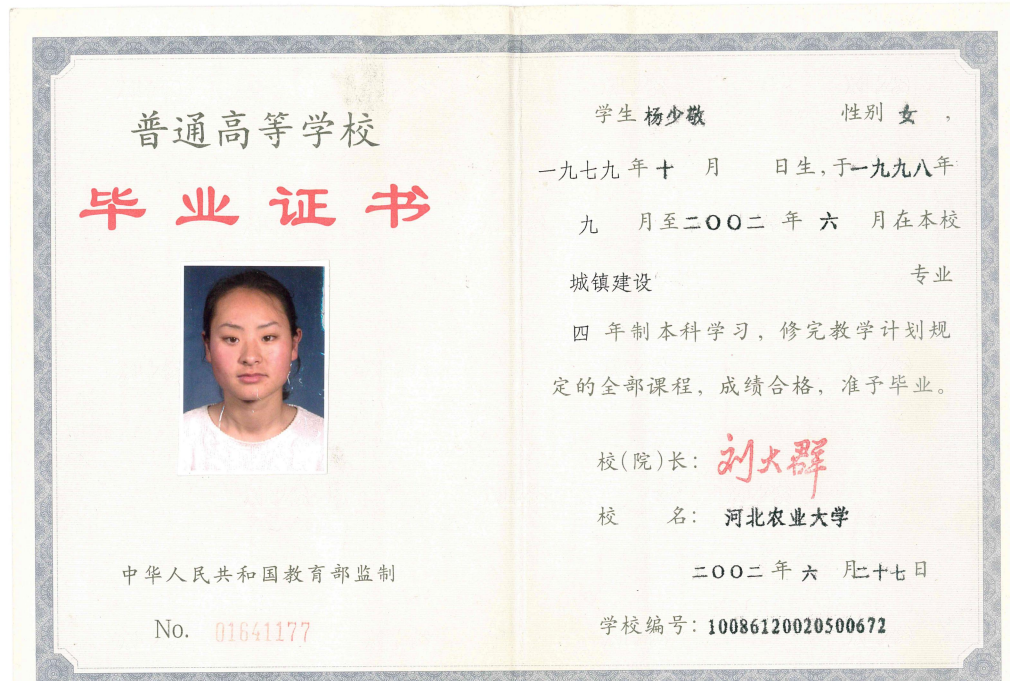 普通高等学校
毕业证书
中华人民共和国教育部监制
No. 01641177
学生 杨少敬 性别 女 ，
一九七九 年 十 月 日生，于一九九八年
九 月至二〇〇二 年 六 月在本校
城镇建设 专业
四 年制本科学习，修完教学计划规
定的全部课程，成绩合格，准予毕业。
校(院)长： 刘大群
校 名： 河北农业大学
二〇〇二 年 六 月二十七日
学校编号：10086120020500672